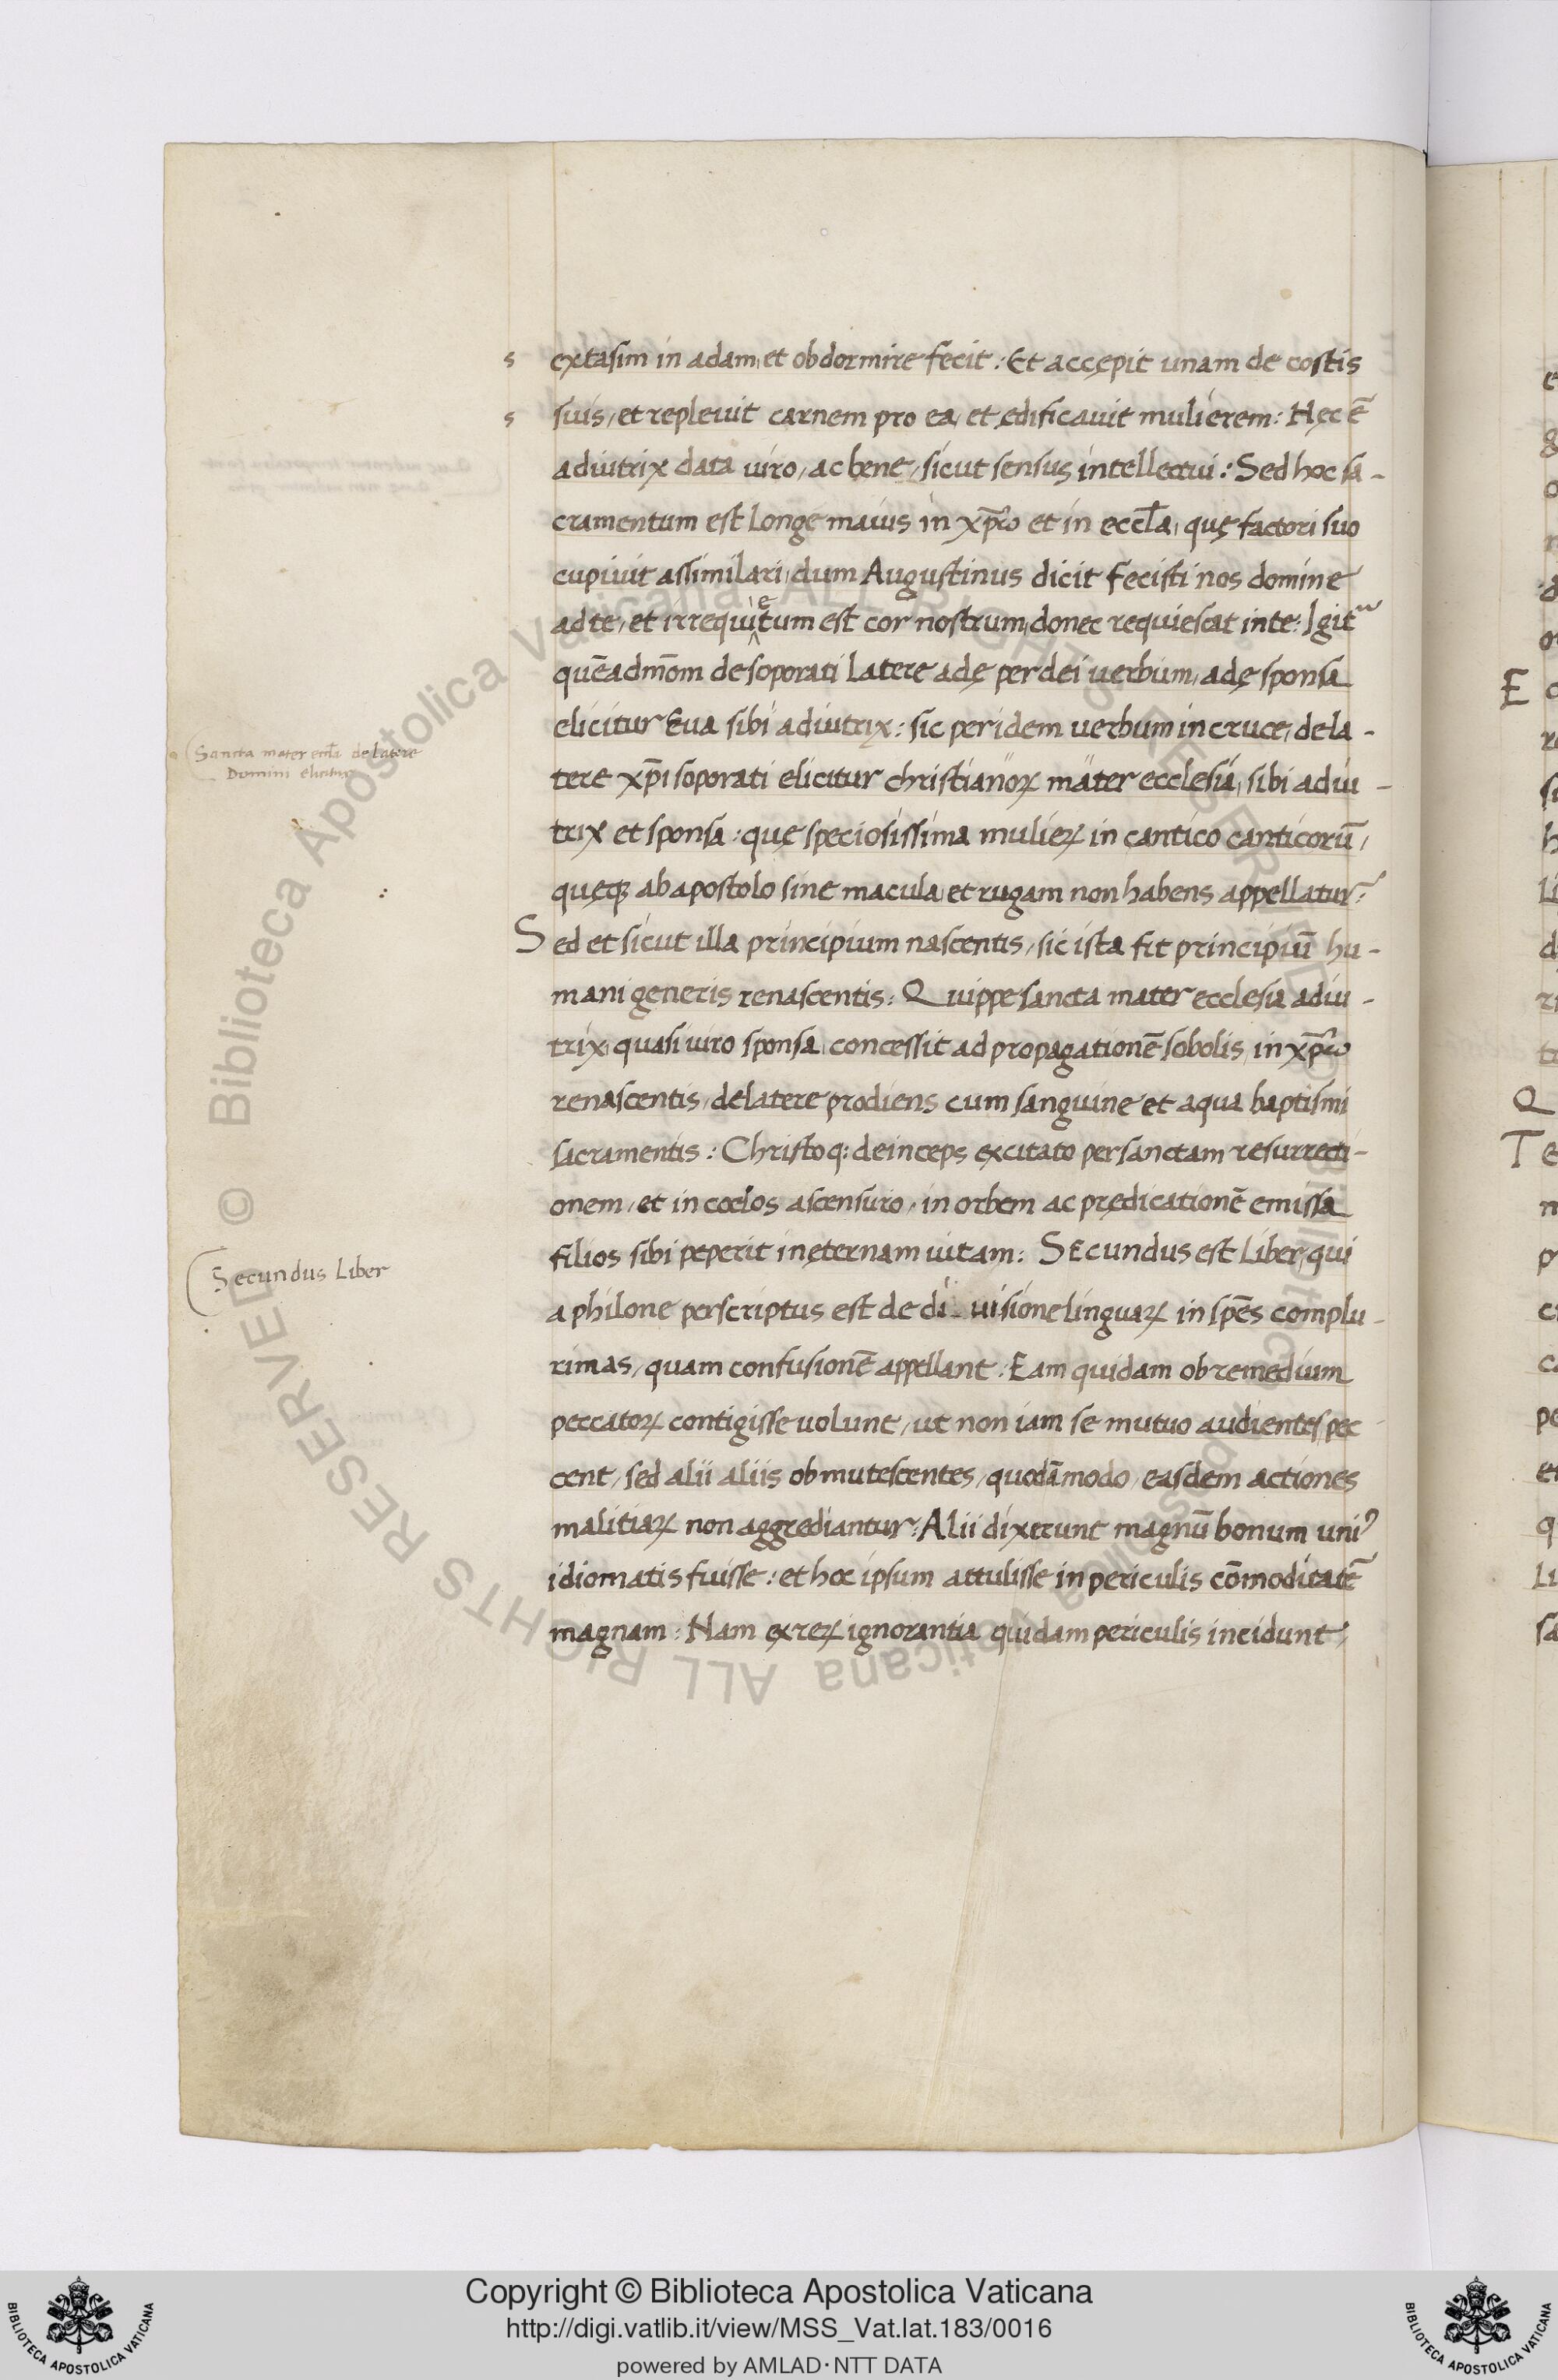 extasim in adam, et obdormire fecit: Et accępit unam de costis
suis, et repleuit carnem pro ea, et ędificauit mulierem: Hęc ē
adiutrix data uiro, ac bene, sicut sensus intellectui: Sed hoc sa-
cramentum est longe maius in xp̄o et in eccl̄a, quę factori suo
cupiuit assimilari, dum Augustinus dicit Fecisti nos domine
ad te, et irrequietum est cor nostrum, donec requiescat in te: Igit̃
quēadmōm de soporati latere adę per dei uerbum, adę sponsa
elicitur Eua sibi adiutrix: sic per idem uerbum in cruce, de la-
tere xp̄i soporati elicitur christianoꝝ mater ecclesia, sibi adiu-
trix et sponsa: quę speciosissima mulieꝝ in cantico canticorū,
quęqꝫ ab apostolo sine macula et rugam non habens appellatur:
Sed et sicut illa principium nascentis, sic ista fit principiū hu-
mani generis renascentis: Quippe sancta mater ecclesia adiu-
trix, quasi uiro sponsa, concessit ad propagationē sobolis, in xp̄o
renascentis, de latere prodiens cum sanguine et aqua baptismi
sacramentis: Christoq: deinceps excitato per sanctam resurrecti-
onem, et in coelos ascensuro, in orbem ac prędicationē emissa
filios sibi peperit in ęternam uitam: Secundus est Liber, qui
a philone perscriptus est de di-uisione linguaꝝ in sp̄es complu-
rimas, quam confusionē appellant: Eam quidam ob remedium
peccatoꝝ contigisse uolunt, ut non iam se mutuo audientes pec-
cent, sed alii aliis obmutescentes, quodāmodo, easdem actiones
malitiaꝝ non aggrediantur: Alii dixerunt magnū bonum uniꝰ
idiomatis fuisse: et hoc ipsum attulisse in periculis cōmoditatē
magnam: Nam ex reꝝ ignorantia quidam periculis incidunt,
s
s
Sancta mater eccl̄a de latere
Domini elicitur
Secundus Liber
© Biblioteca Apostolica Vaticana ALL RIGHTS RESERVED
© Biblioteca Apostolica Vaticana ALL RIGHTS RESERVED
E
Q
Te
BIBLIOTECA APOSTOLICA VATICANA
Copyright © Biblioteca Apostolica Vaticana
http://digi.vatlib.it/view/MSS_Vat.lat.183/0016
powered by AMLAD·NTT DATA
BIBLIOTECA APOSTOLICA VATICANA